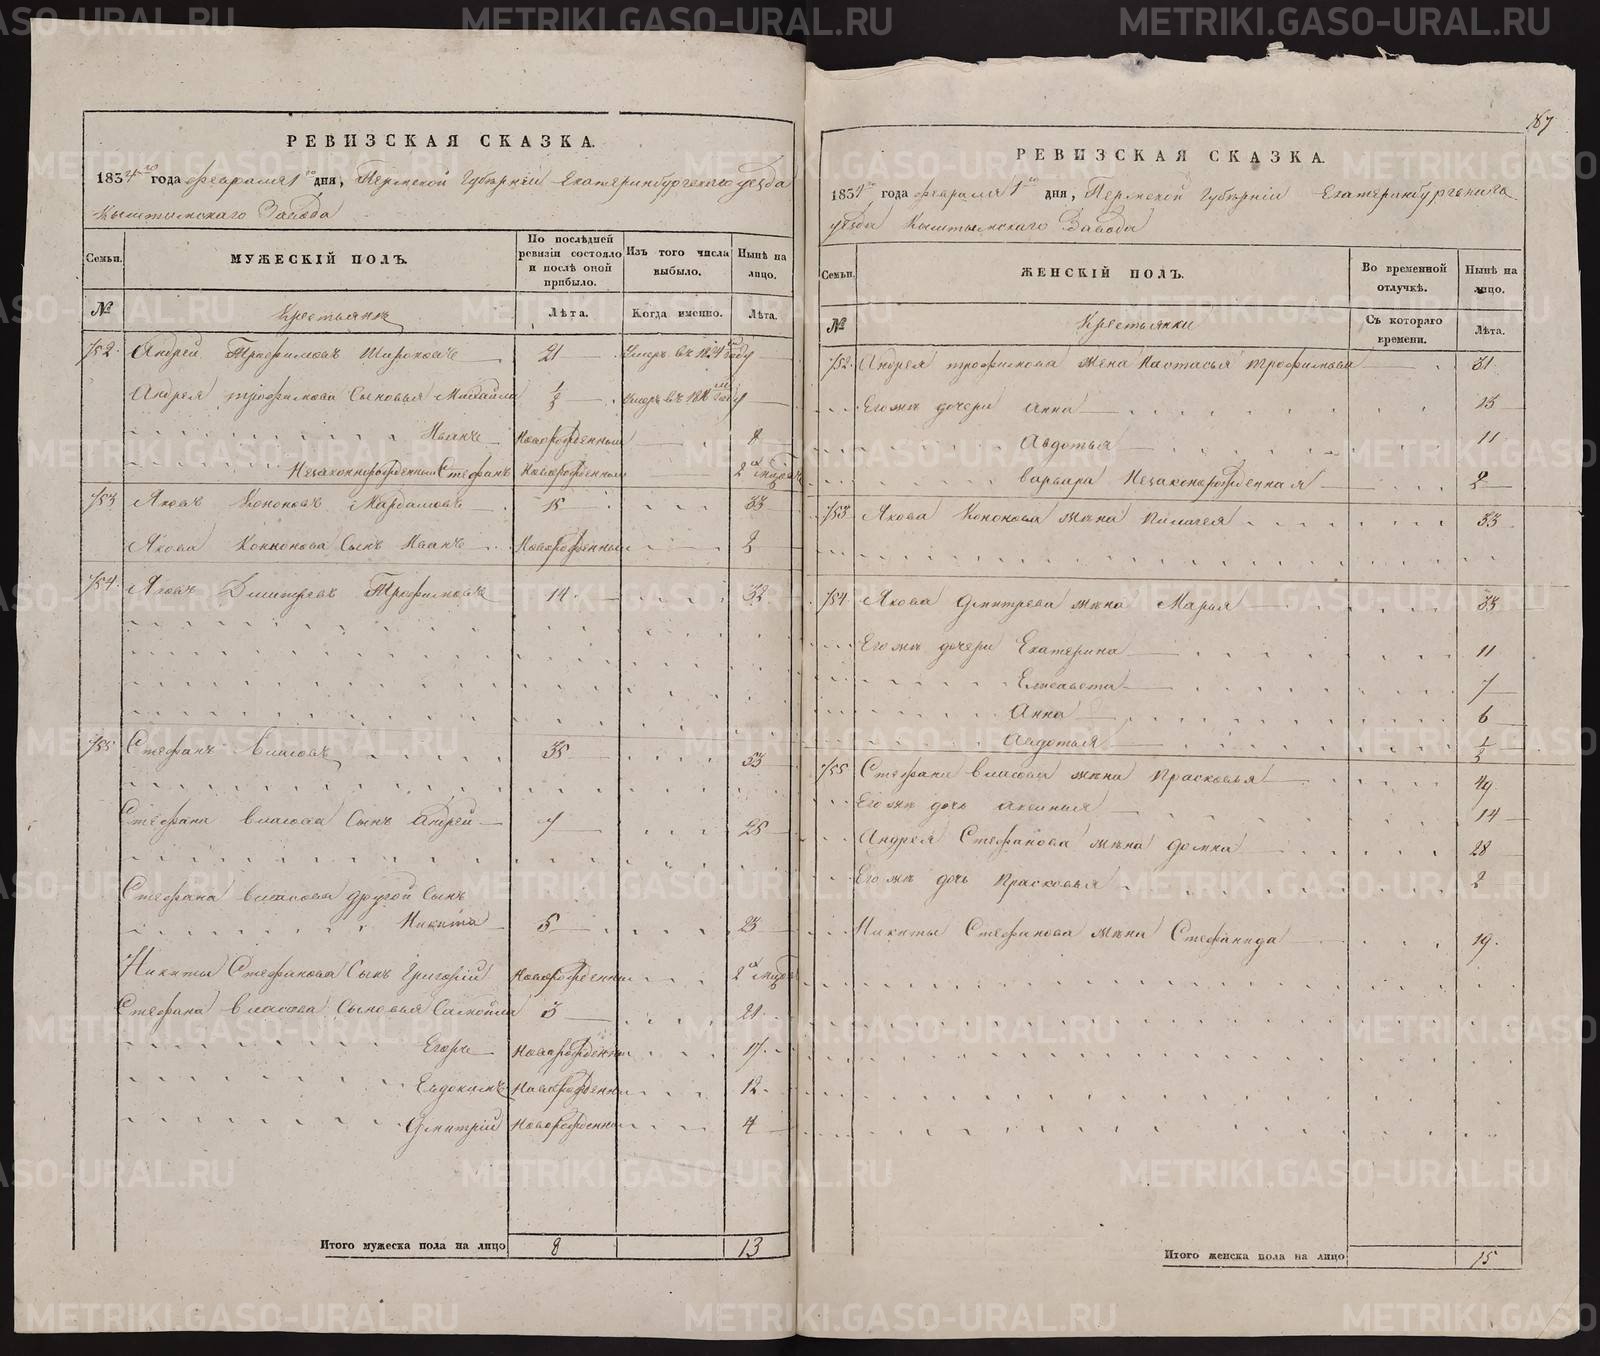 187
РЕВИЗСКАЯ СКАЗКА.
1834го года февраля 1го дня, Пермской Губернiи Екатеринбургскаго уезда
Кыштымскаго Завода
Семьи. МУЖЕСКІЙ ПОЛЪ. По послѣдней ревизіи состояло и послѣ оной прибыло. Изъ того числа выбыло. Нынѣ на лицо.
№ Крестьяне Лѣта. Когда именно. Лѣта.
752. Андрей Трофимовъ 21 Умеръ въ году
Андрея Трофимова Сыновья Михайла 1/2 умеръ въ году
Иванъ Новорожденный 8
Незаконнорожденный Стефанъ Новорожденный 2
753 Яковъ Кононовъ 15 33
Якова Кононова Сынъ Иванъ Новорожденный
754. Яковъ Дмитревъ Трофимовъ 14 32
755 Стефанъ Власовъ 35 53
Стефана Власова Сынъ Андрей 7 25
Стефана Власова другой Сынъ
Никита 5 23
Никиты Стефанова Сынъ Григорій Новорожденный 2
Стефана Власова Сыновья Самойла 3 21
Егоръ Новорожденный 17
Евдокимъ Новорожденный 12
Дмитрій Новорожденный 4
Итого мужеска пола на лицо 8 13
РЕВИЗСКАЯ СКАЗКА.
1834го года февраля 1го дня, Пермской Губернiи Екатеринбургскаго
уезда Кыштымскаго Завода
Семьи. ЖЕНСКІЙ ПОЛЪ. Во временной отлучкѣ. Нынѣ на лицо.
№ Крестьянки Съ котораго времени. Лѣта.
752. Андрея Трофимова жена Настасья Трофимова 31
Его же дочери Анна 13
Авдотья 11
Варвара Незаконорожденная 2
753 Якова Кононова жена Пилагея 33
754 Якова Дмитрева жена Марья 33
Его же дочери Екатерина 11
Елисавета 7
Анна 6
Авдотья 1/2
755 Стефана Власова жена Прасковья 49
Его же дочь Аксинья 14
Андрея Стефанова жена Домна 28
Его же дочь Прасковья 2
Никиты Стефанова жена Стефанида 19
Итого женска пола на лицо 15
METRIKI.GASO-URAL.RU